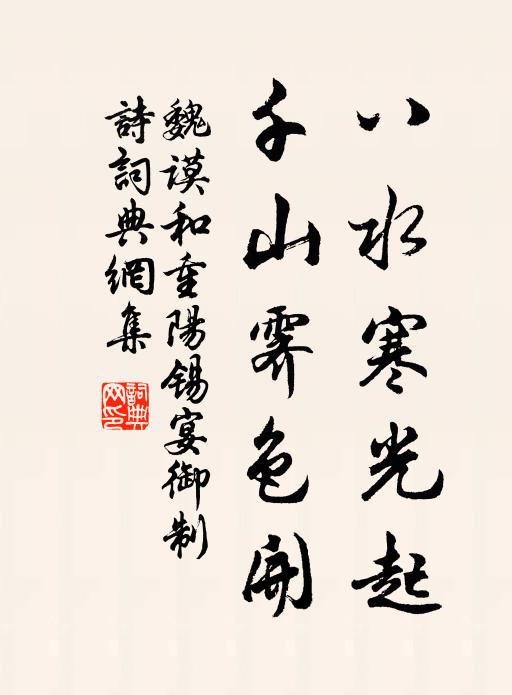 八水寒光起
千山霽色開
魏謨和重陽錫宴御制
詩詞典網集
詞典網印